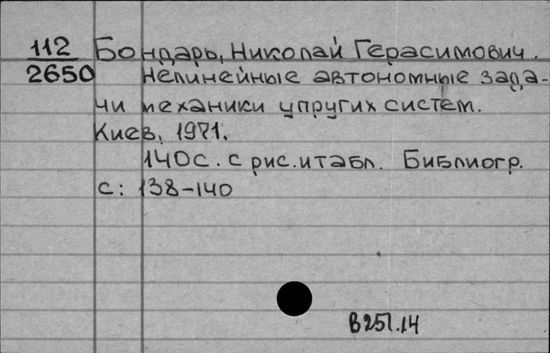 112 Бондарь, Николай Герасимович.
2650 Нелинейные автономные зада-
чи механики упругих систем.
Киев, 1971.
140с. с рис. и табл. Библиогр.
с: 138-140
В251.14